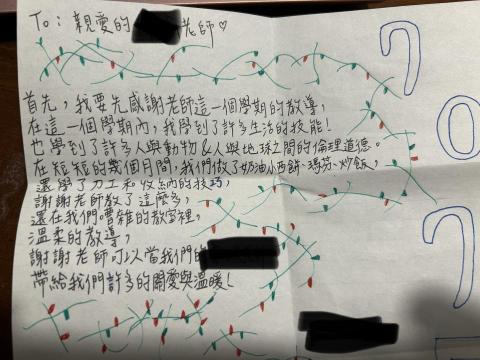 To：親愛的 老師♡
首先，我要先感謝老師這一個學期的教導，
在這一個學期內，我學到了許多生活的技能！
也學到了許多人與動物&人與地球之間的倫理道德。
在短短的幾個月間，我們做了奶油小西餅、瑪芬、炒飯，
還學了刀工和收納的技巧，
謝謝老師教了這麼多，
還在我們嘈雜的教室裡，
溫柔的教導，
謝謝老師可以當我們的
帶給我們許多的關愛與溫暖！